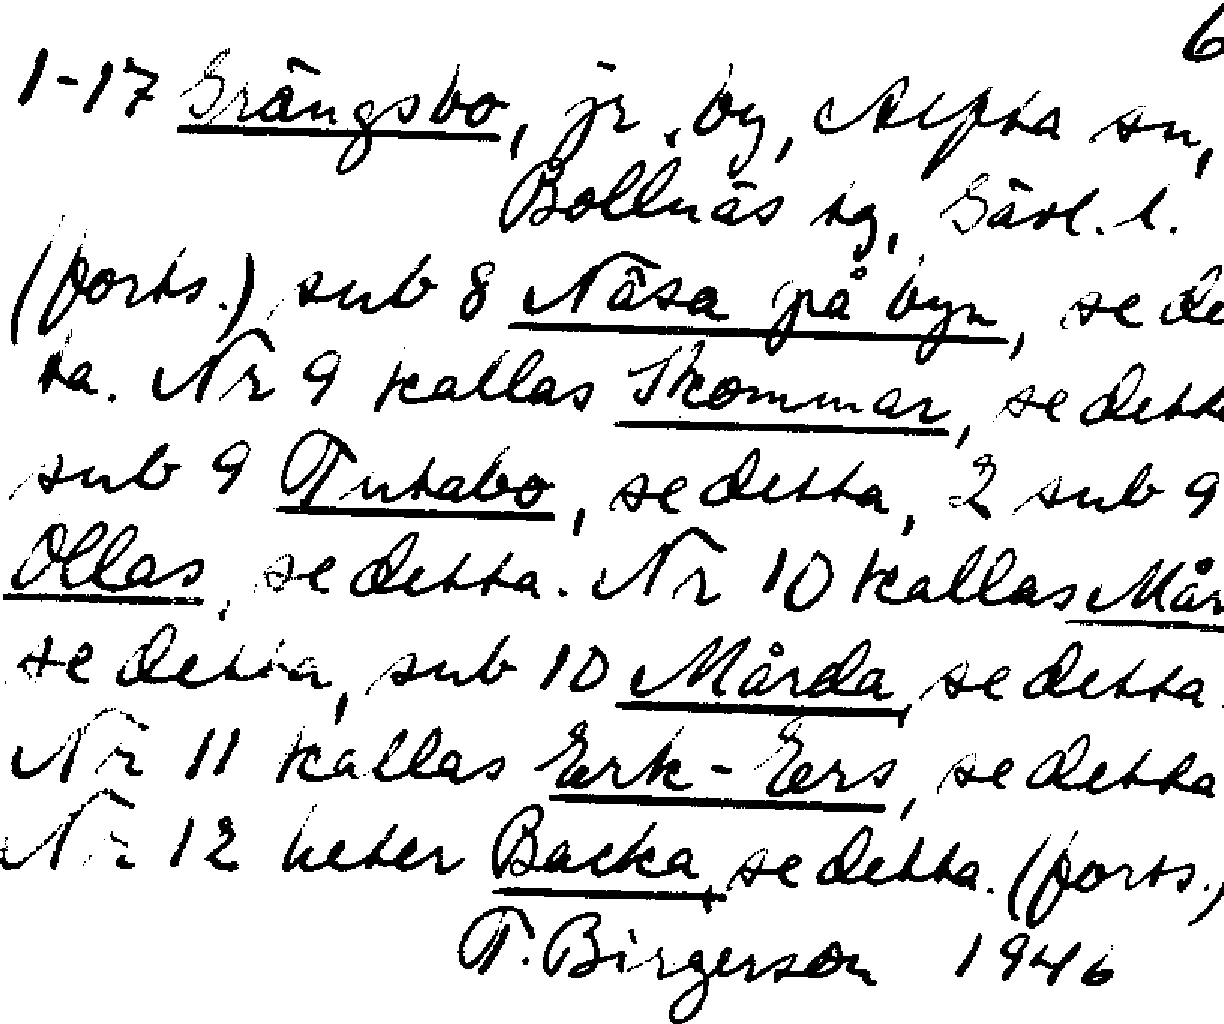 6
1-17 Grängsbo, jr. by, Alfta sn,
Bollnäs tg, Gävl. l.
(forts.) sub 8 Näsa på byn, se de
ta. Nr 9 kallas Skommar, se detta
sub 9 Tutabo, se detta, 2 sub 9
Ollas, se detta. Nr 10 kallas Mår
se detta, sub 10 Mårda, se detta.
Nr 11 kallas Erk-Ers, se detta
Nr 12 heter Backa, se detta. (forts.)
T. Birgerson 1946